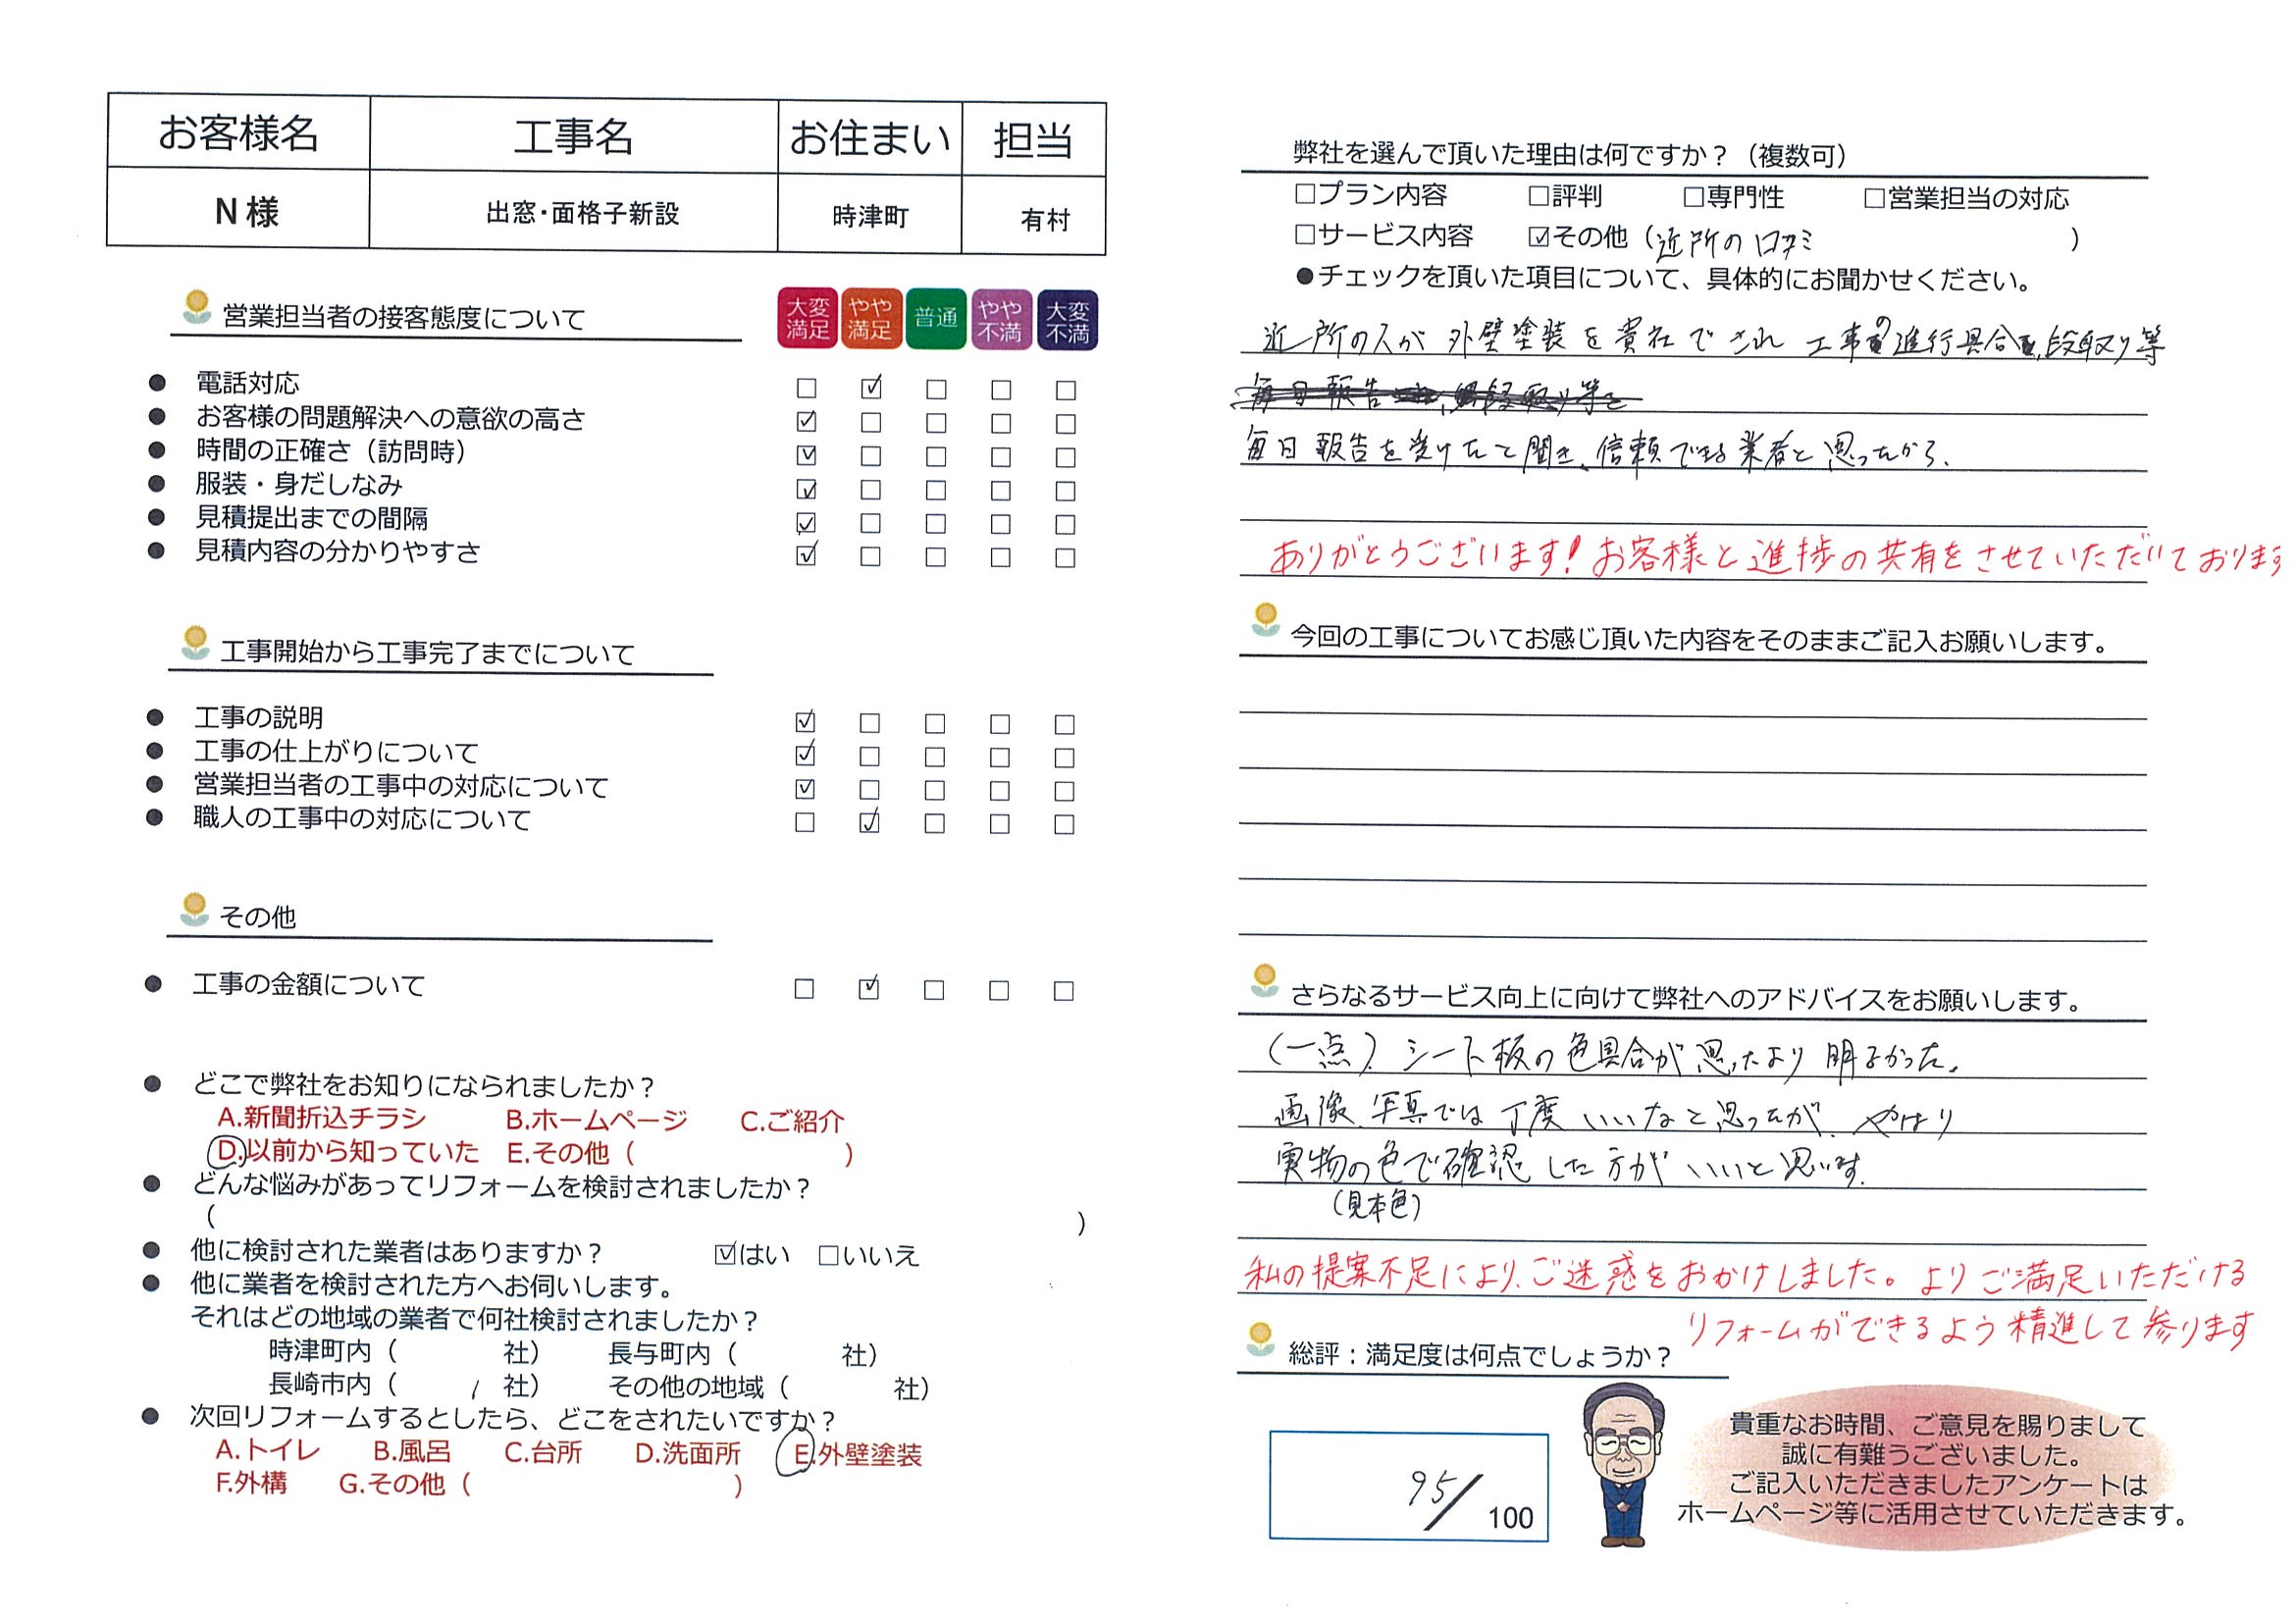 お客様名 工事名 お住まい 担当
N様 出窓・面格子新設 時津町 有村
営業担当者の接客態度について
大変満足 やや満足 普通 やや不満 大変不満
● 電話対応 □ ☑ □ □ □
● お客様の問題解決への意欲の高さ ☑ □ □ □ □
● 時間の正確さ（訪問時） ☑ □ □ □ □
● 服装・身だしなみ ☑ □ □ □ □
● 見積提出までの間隔 ☑ □ □ □ □
● 見積内容の分かりやすさ ☑ □ □ □ □
工事開始から工事完了までについて
● 工事の説明 ☑ □ □ □ □
● 工事の仕上がりについて ☑ □ □ □ □
● 営業担当者の工事中の対応について ☑ □ □ □ □
● 職人の工事中の対応について □ ☑ □ □ □
その他
● 工事の金額について □ ☑ □ □ □
● どこで弊社をお知りになられましたか？
A.新聞折込チラシ B.ホームページ C.ご紹介
D.以前から知っていた E.その他（ ）
● どんな悩みがあってリフォームを検討されましたか？
（ ）
● 他に検討された業者はありますか？ ☑はい □いいえ
● 他に業者を検討された方へお伺いします。
それはどの地域の業者で何社検討されましたか？
時津町内（ 社） 長与町内（ 社）
長崎市内（ 1 社） その他の地域（ 社）
● 次回リフォームするとしたら、どこをされたいですか？
A.トイレ B.風呂 C.台所 D.洗面所 E.外壁塗装
F.外構 G.その他（ ）
弊社を選んで頂いた理由は何ですか？（複数可）
□プラン内容 □評判 □専門性 □営業担当の対応
□サービス内容 ☑その他（近所の口コミ ）
●チェックを頂いた項目について、具体的にお聞かせください。
近所の人が外壁塗装を貴社でされ 工事の進行具合、段取り等
毎日報告を受けたと聞き、信頼できる業者と思ったから、
ありがとうございます！お客様と進捗の共有をさせていただいております
今回の工事についてお感じ頂いた内容をそのままご記入お願いします。
さらなるサービス向上に向けて弊社へのアドバイスをお願いします。
（一点）シート板の色具合が思ったより明るかった。
画像、写真では丁度いいなと思ったが、やはり
実物の色で確認した方がいいと思います。
（見本色）
私の提案不足により、ご迷惑をおかけしました。よりご満足いただける
リフォームができるよう精進して参ります
総評：満足度は何点でしょうか？
95/100
貴重なお時間、ご意見を賜りまして
誠に有難うございました。
ご記入いただきましたアンケートは
ホームページ等に活用させていただきます。